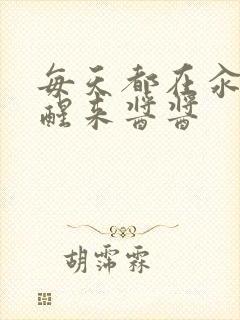 每天都在汆
醒来酱酱
胡霈霖